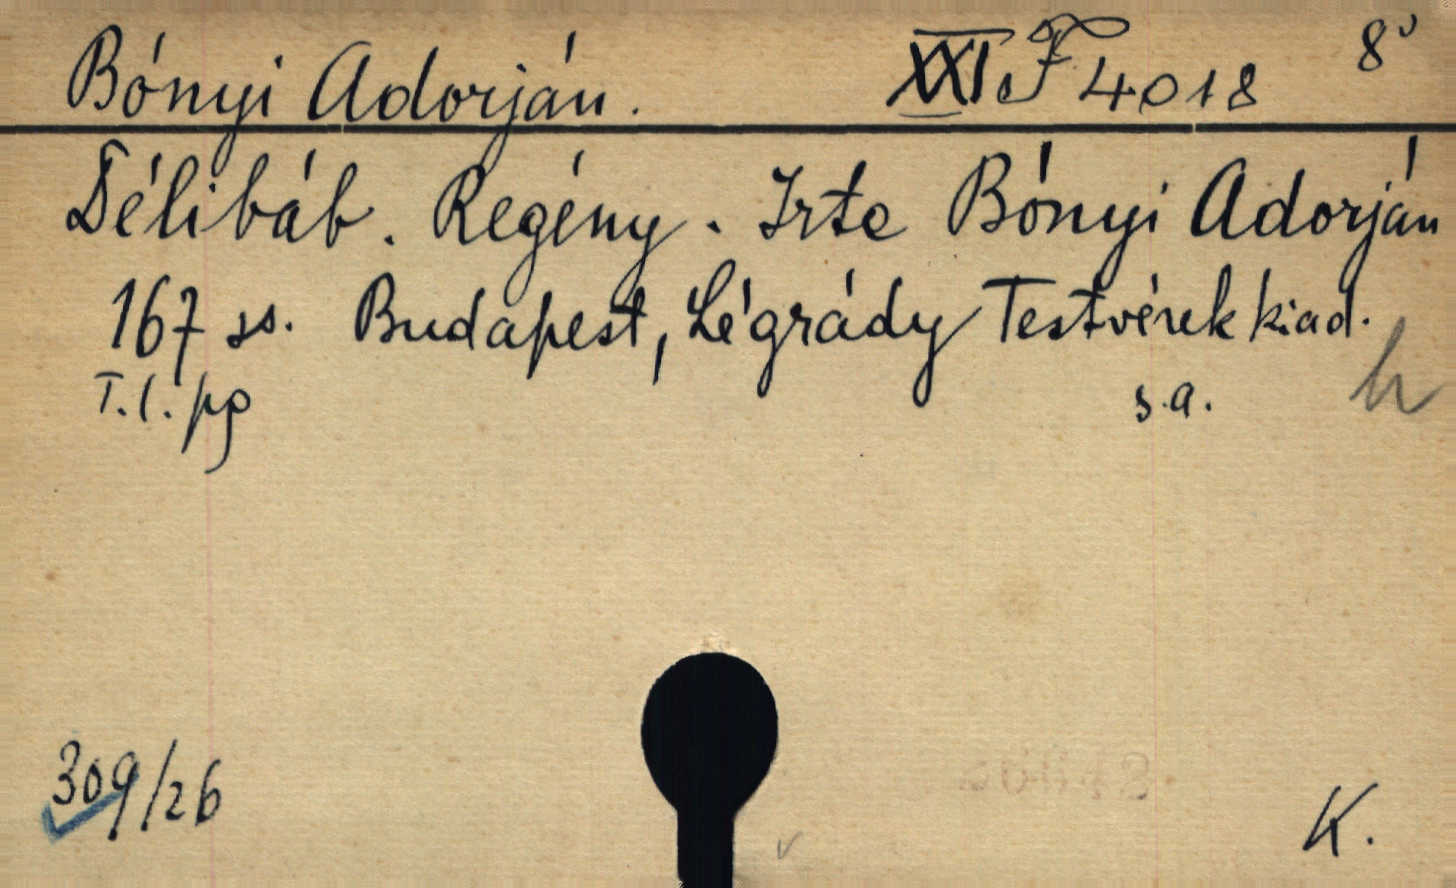 Bónyi Adorján. XXI F 4018 8°
Délibáb. Regény. Irta Bónyi Adorján
167 ss. Budapest, Légrády Testvérek kiad.
T.l. pg s.a. h
309/26 K.